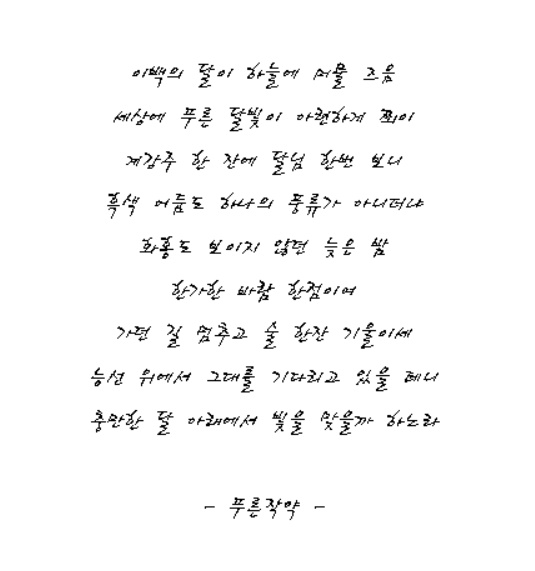 이백의 달이 하늘에 머물 즈음
세상에 푸른 달빛이 아련하게 쬐이
계감주 한 잔에 달님 한번 보니
흑색 어둠도 하나의 풍류가 아니더냐
화홍도 보이지 않던 늦은 밤
한가한 바람 한점이여
가던 길 멈추고 술 한잔 기울이세
능선 위에서 그대를 기다리고 있을 테니
충만한 달 아래에서 빛을 맞을까 하노라
- 푸른작약 -